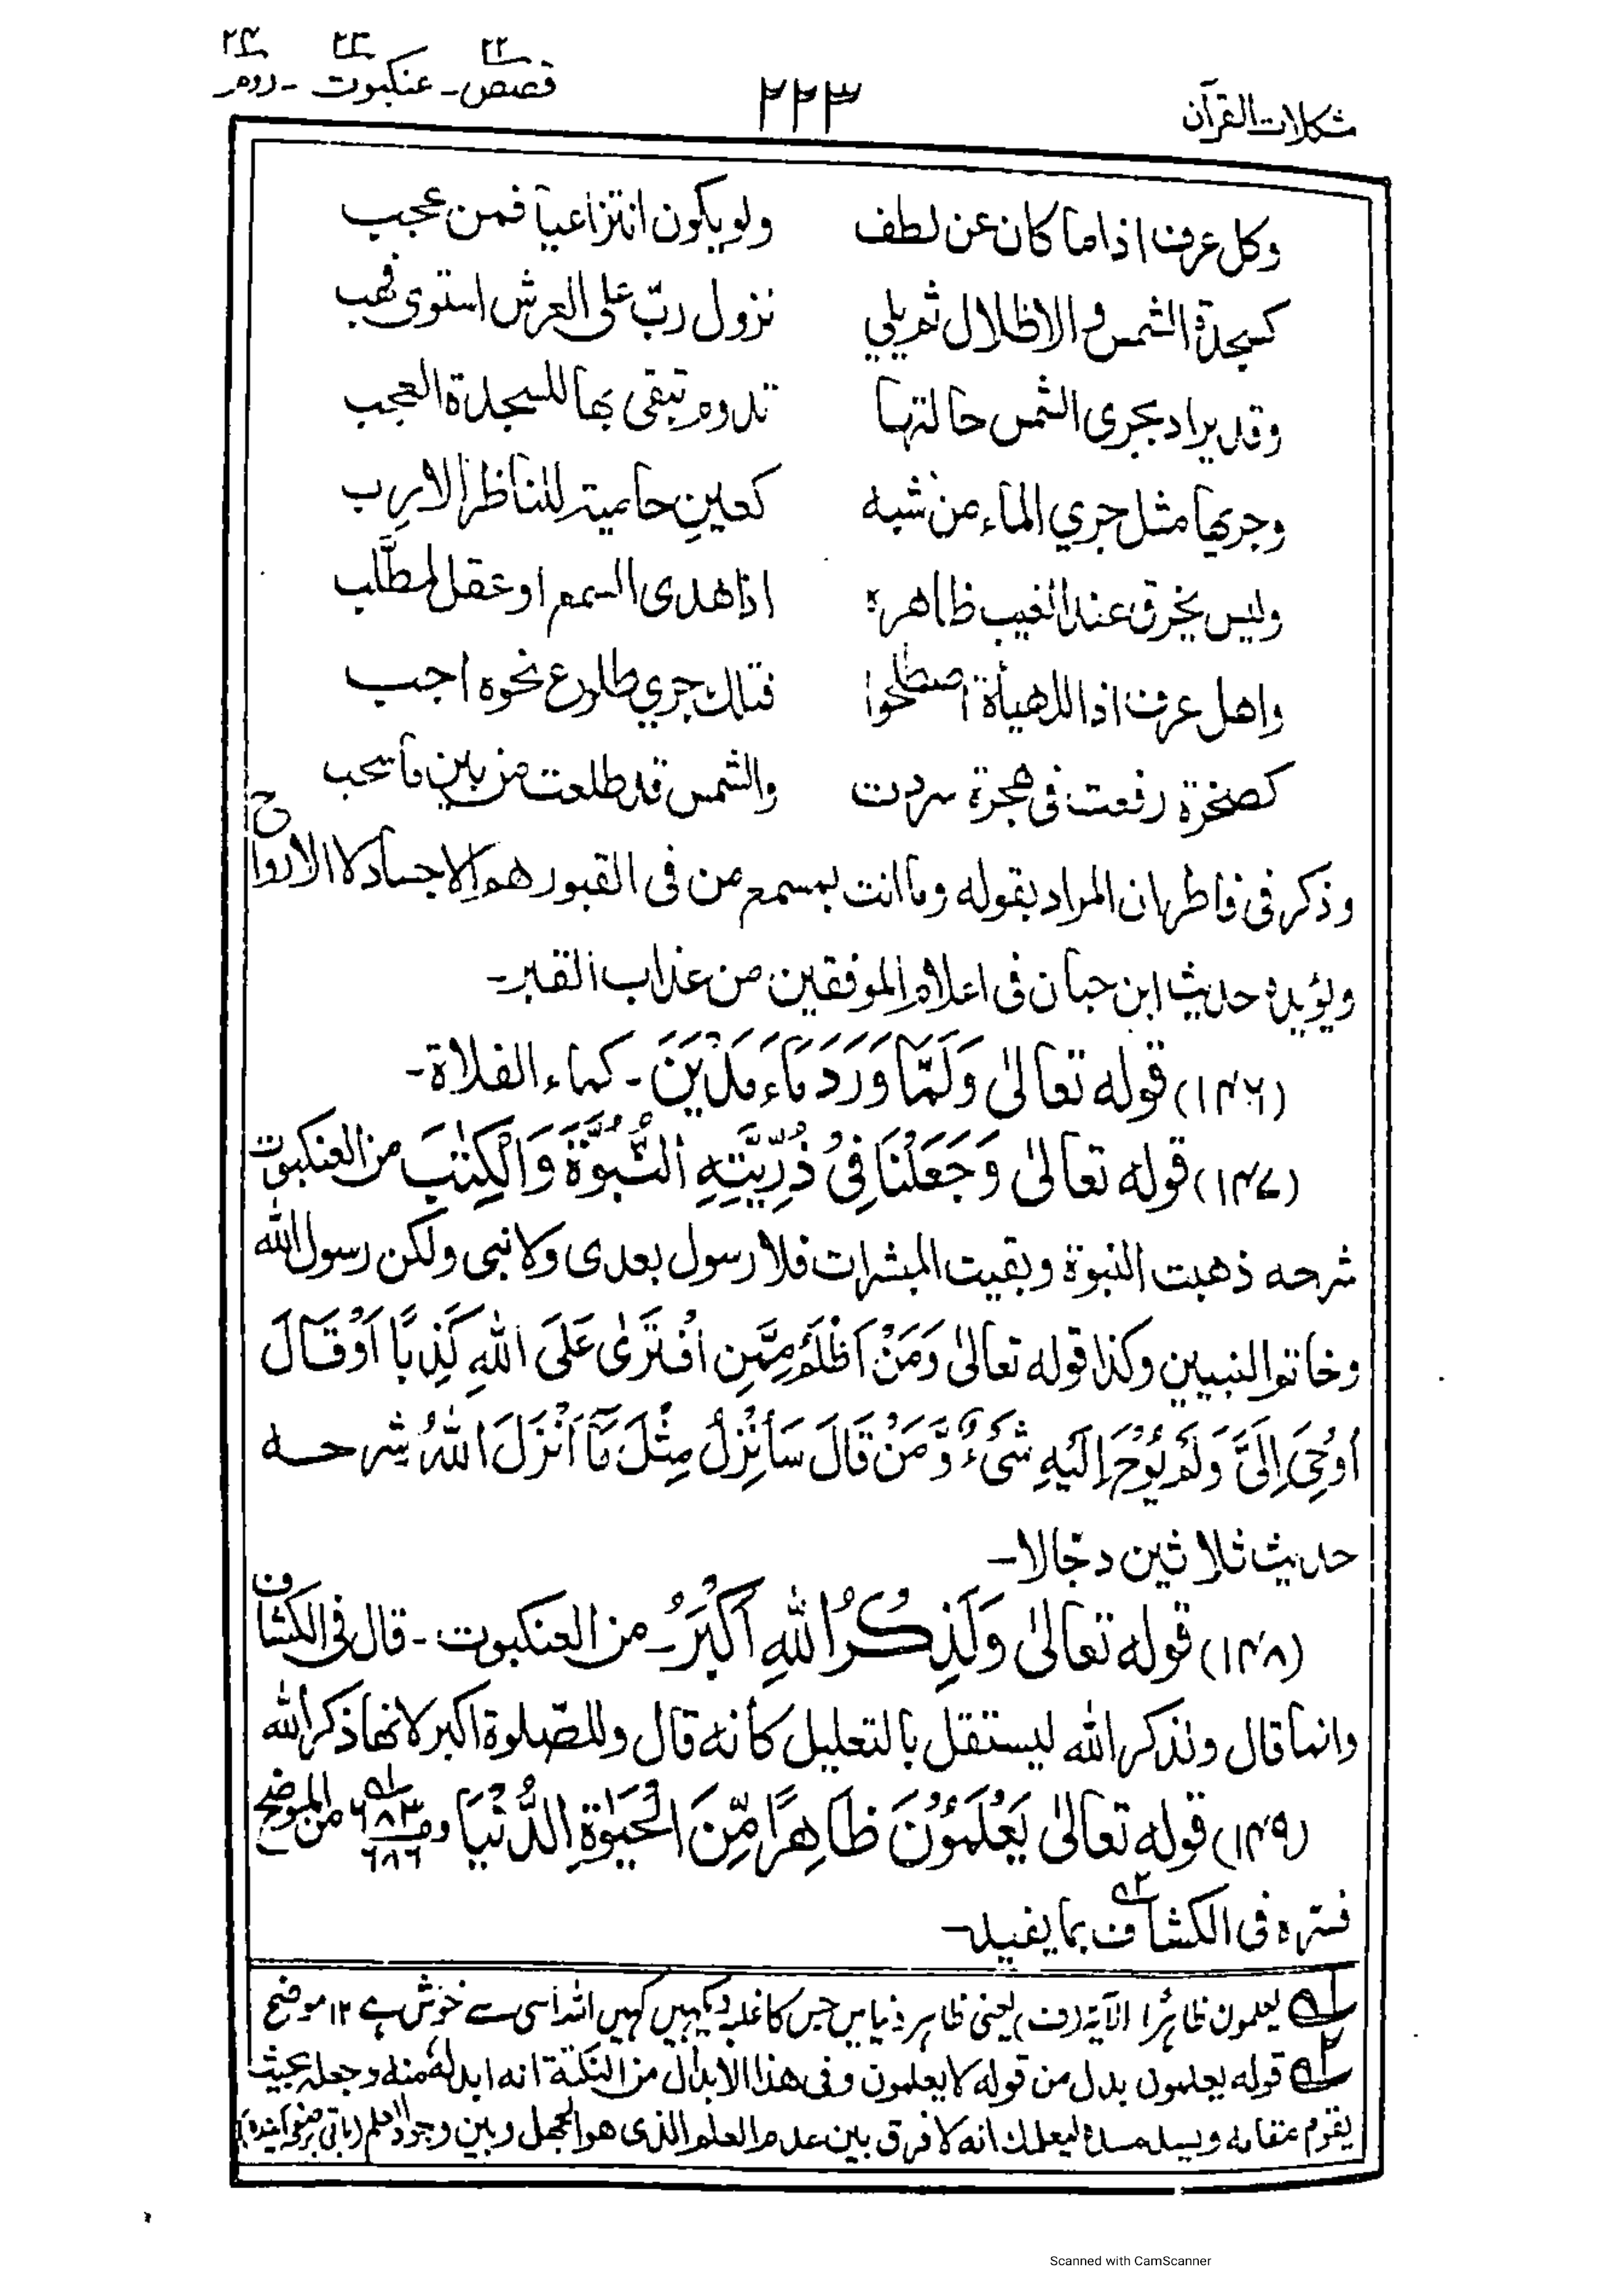 مشكلات القرآن ۲۲۳ قصص۔ عنكبوت۔ روم
۲۲ ۲۳ ۲۴
وكل عرف اذا ما كان عن لطف ولو يكون انتزاعياً فمن عجب
كسجدة الشمس والاظلال ثم يلي نزول ربّ على العرش استوى فهب
وقد يراد بجرى الشمس حالتها تدوم تبقى بها للسجدة العجب
وجريها مثل جري الماء من شبه كعينِ حامية للناظر الارِب
وليس يخرق عند الغيب ظاهره اذا هدى السمع او عقل لمطَّلب
واهل عرف اذا للهيأة اصطلحوا فتلك جري طلوع نحوه اجب
كصخرة رفعت فى هجرة سردت والشمس قد طلعت من بين ما سحب
وذكر فى فاطر ان المراد بقوله وما انت بمسمع من فى القبور هو الاجساد لا الارواح
ويؤيده حديث ابن حبان فى اعلام الموفقين من عذاب القبر۔
(۱۴۶) قوله تعالىٰ وَلَمَّا وَرَدَ مَاءَ مَدْيَنَ۔ كماء الفلاة۔
(۱۴۷) قوله تعالىٰ وَجَعَلْنَا فِىْ ذُرِّيَّتِهِ النُّبُوَّةَ وَالْكِتٰبَ من العنكبوت
شرحه ذهبت النبوة وبقيت المبشرات فلا رسول بعدى ولا نبى ولكن رسول الله
وخاتم النبيين وكذا قوله تعالىٰ وَمَنْ اَظْلَمُ مِمَّنِ افْتَرٰى عَلَى اللهِ كَذِبًا اَوْ قَالَ
اُوْحِىَ اِلَىَّ وَلَمْ يُوْحَ اِلَيْهِ شَىْءٌ وَّمَنْ قَالَ سَاُنْزِلُ مِثْلَ مَآ اَنْزَلَ اللهُ شرحه
حديث ثلاثين دجّالا۔
(۱۴۸) قوله تعالىٰ وَلَذِكْرُ اللهِ اَكْبَرُ۔ من العنكبوت۔ قال فى الكشاف
وانما قال ولذكر الله ليستقل بالتعليل كأنه قال وللصّلوة اكبر لانها ذكر الله
(۱۴۹) قوله تعالىٰ يَعْلَمُوْنَ ظَاهِرًا مِّنَ الْحَيٰوةِ الدُّنْيَا و ۶۸۳ ۶۸۶ من الموضح
فسّره فى الكشاف بما يفيد۔
۱؎ يعلمون ظاہرًا الآية (ف) یعنی ظاہر دنیا میں جس کا غلبہ دیکہیں کہیں اللہ اسی سے خوش ہے ۱۲ موضح
۲؎ قوله يعلمون بدل من قوله لا يعلمون وفى هذا الابدال من النكتة انه ابدله منه وجعله بحيث
يقوم مقامه ويسد مسده ليعلمك انه لا فرق بين عدم العلم الذى هو الجهل وبين وجود العلم (باقى بر صفحہ آئندہ)
Scanned with CamScanner